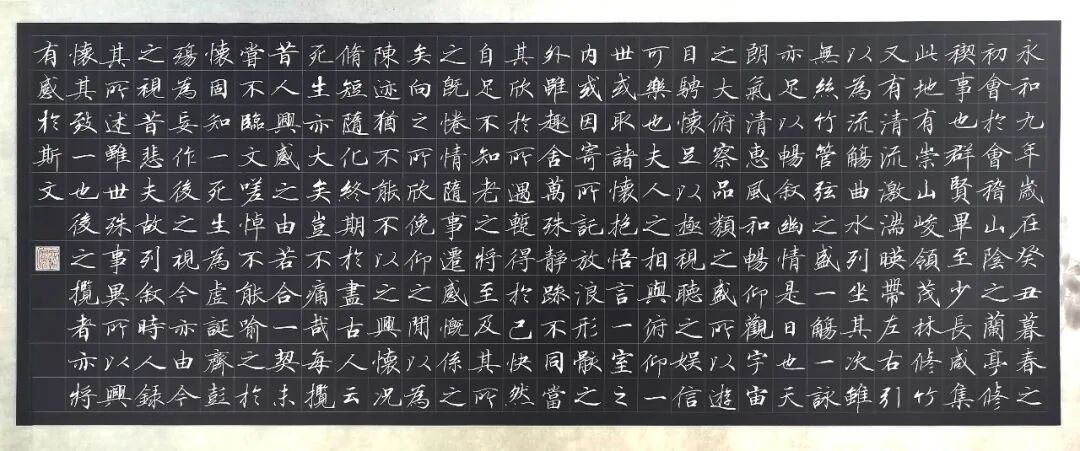 永和九年歲在癸丑暮春之
初會於會稽山陰之蘭亭修
禊事也群賢畢至少長咸集
此地有崇山峻領茂林修竹
又有清流激湍暎帶左右引
以為流觴曲水列坐其次雖
無絲竹管弦之盛一觴一詠
亦足以暢敘幽情是日也天
朗氣清惠風和暢仰觀宇宙
之大俯察品類之盛所以遊
目騁懷足以極視聽之娛信
可樂也夫人之相與俯仰一
世或取諸懷抱悟言一室之
内或因寄所託放浪形骸之
外雖趣舍萬殊静躁不同當
其欣於所遇蹔得於己快然
自足不知老之將至及其所
之既惓情隨事遷感慨係之
矣向之所欣俛仰之閒以為
陳迹猶不能不以之興懷況
脩短隨化終期於盡古人云
死生亦大矣豈不痛哉每攬
昔人興感之由若合一契未
嘗不臨文嗟悼不能喻之於
懷固知一死生為虛誕齊彭
殤為妄作後之視今亦由今
之視昔悲夫故列敘時人錄
其所述雖世殊事異所以興
懷其致一也後之攬者亦將
有感於斯文